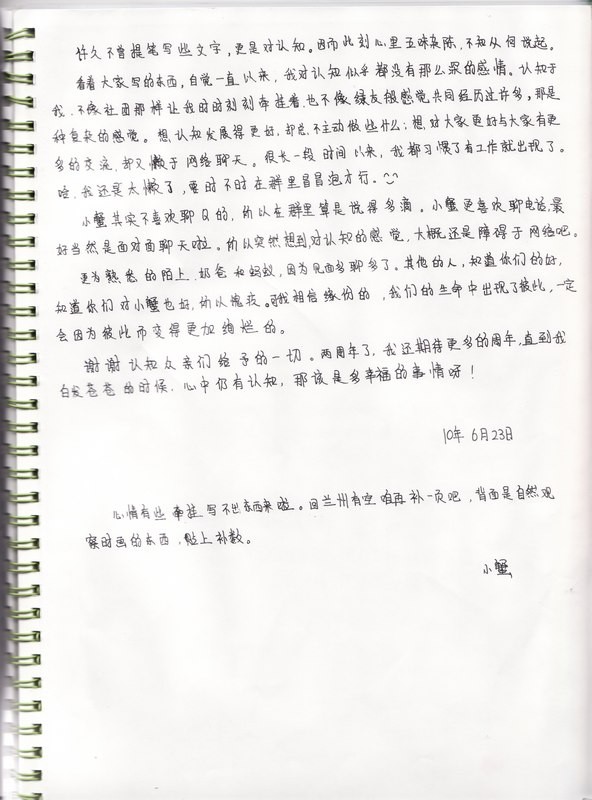 许久不曾提笔写些文字，更是对认知。因而此刻心里五味杂陈，不知从何说起。
看看大家写的东西，自觉一直以来，我对认知似乎都没有那么深的感情。认知于
我，不像社团那样让我时时刻刻牵挂着，也不像绿友般感觉共同经历过许多，那是
种复杂的感觉。想认知发展得更好，却总不主动做些什么；想对大家更好与大家有更
多的交流，却又懒于网络聊天。很长一段时间以来，我都习惯了有工作就出现了。
哈，我还是太懒了，要时不时在群里冒冒泡才行。
小蟹其实不喜欢聊Q的，所以在群里算是说得多滴。小蟹更喜欢聊电话，最
好当然是面对面聊天啦。所以突然想到，对认知的感觉，大概还是障碍于网络吧。
更为熟悉的陌上、奶爸和蚂蚁，因为见面多聊多了。其他的人，知道你们的好，
知道你们对小蟹也好，所以愧疚。我相信缘份的，我们的生命中出现了彼此，一定
会因为彼此而变得更加绚烂的。
谢谢认知众亲们给予的一切。两周年了，我还期待更多的周年，直到我
白发苍苍的时候，心中仍有认知，那该是多幸福的事情呀！
10年 6月23日
心情有些牵挂，写不出东西来啦。回兰州有空咱再补一页吧，背面是自然观
察时画的东西，贴上补数。
小蟹